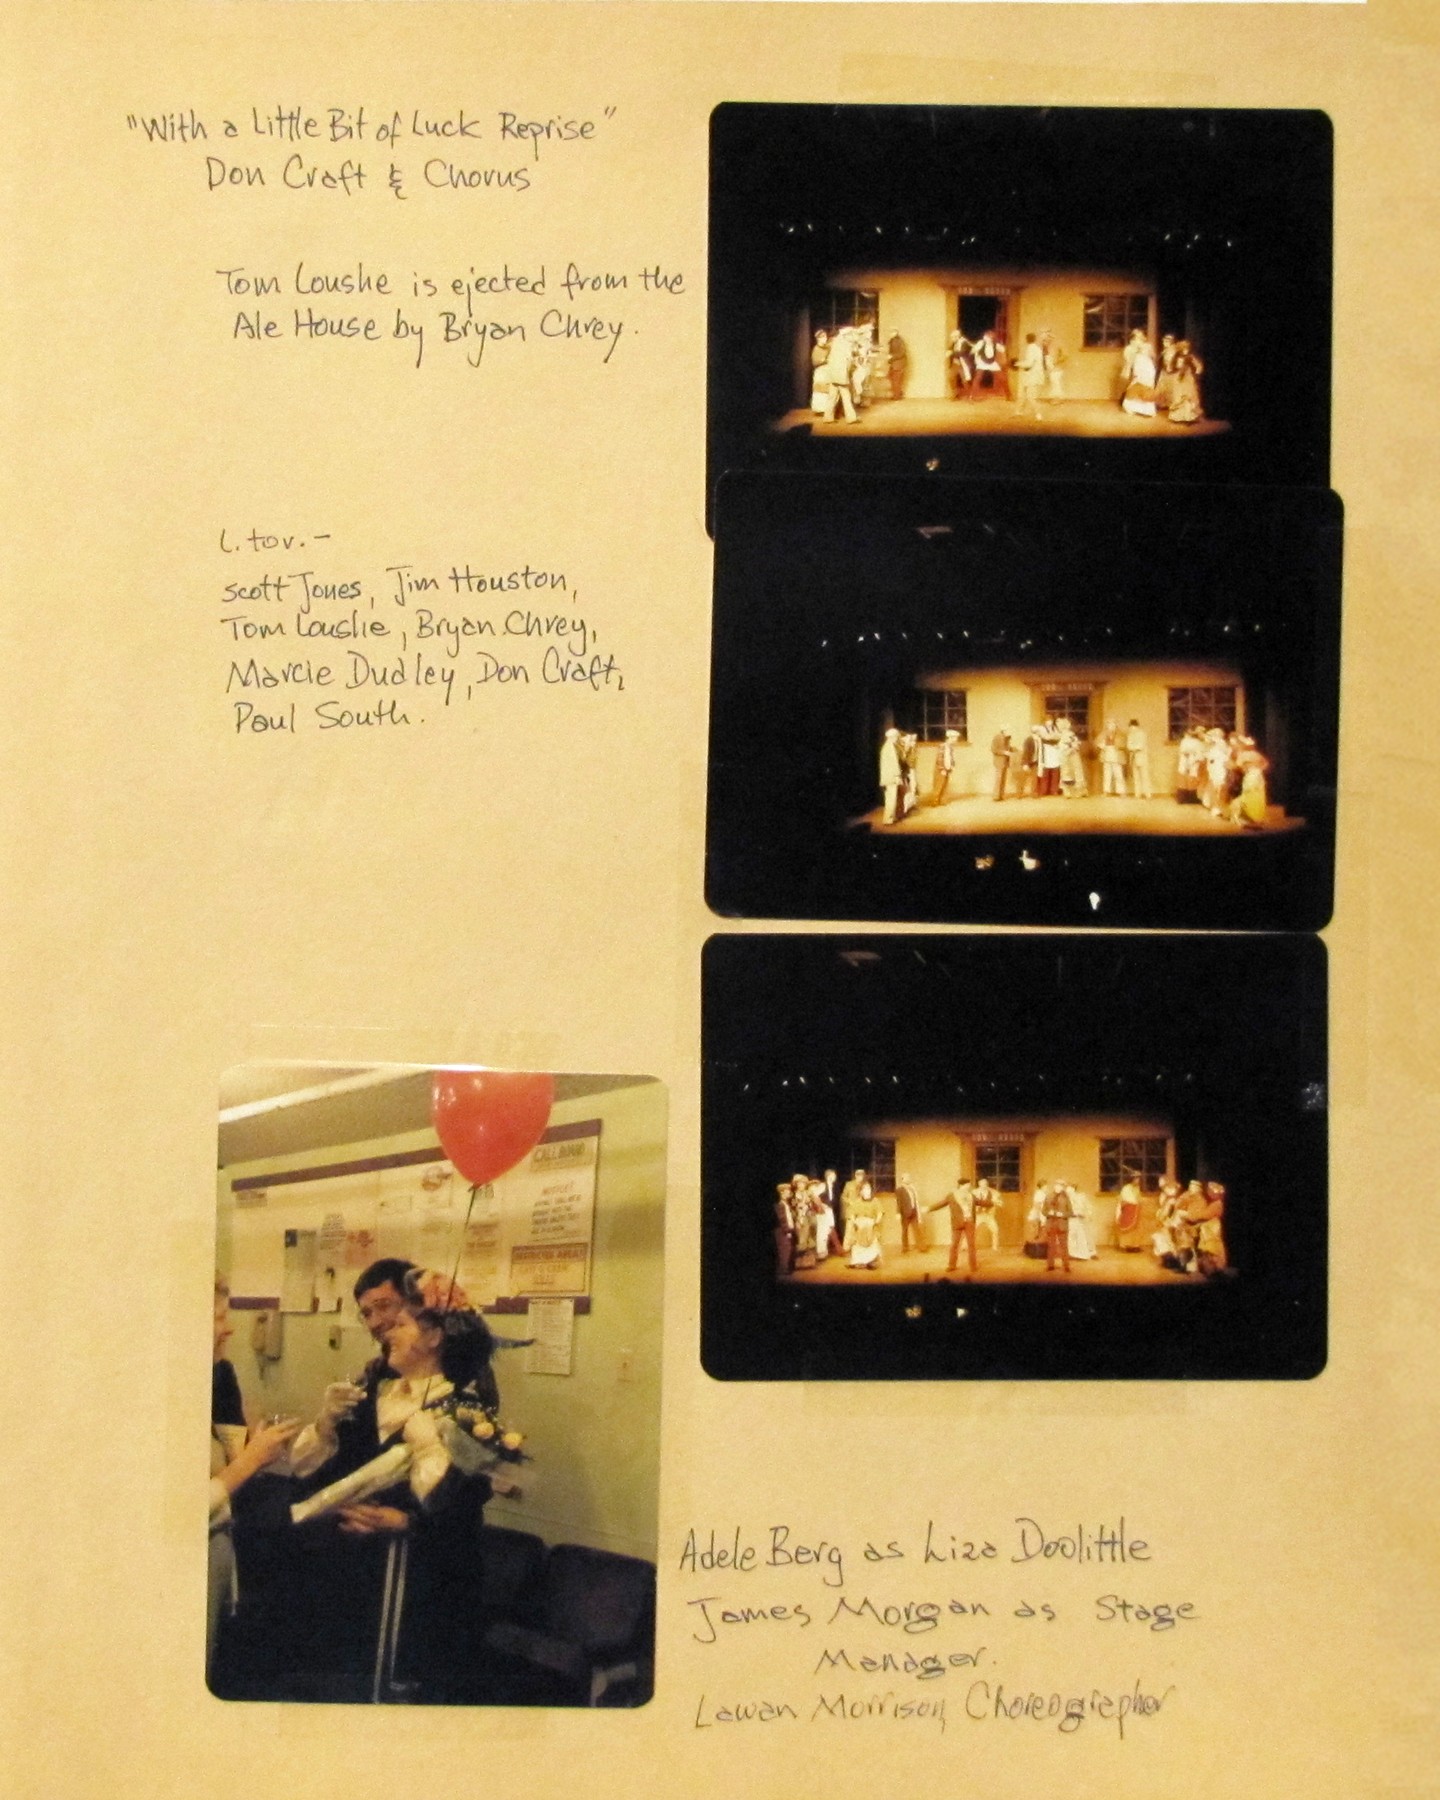 "With a Little Bit of Luck Reprise"
Don Craft & Chorus
Tom Loushe is ejected from the
Ale House by Bryan Chrey.
L. to r. -
Scott Jones, Jim Houston,
Tom Loushe, Bryan Chrey,
Marcie Dudley, Don Craft,
Paul South.
CALLBOARD
Adele Berg as Liza Doolittle
James Morgan as Stage
Manager.
Lawan Morrison, Choreographer